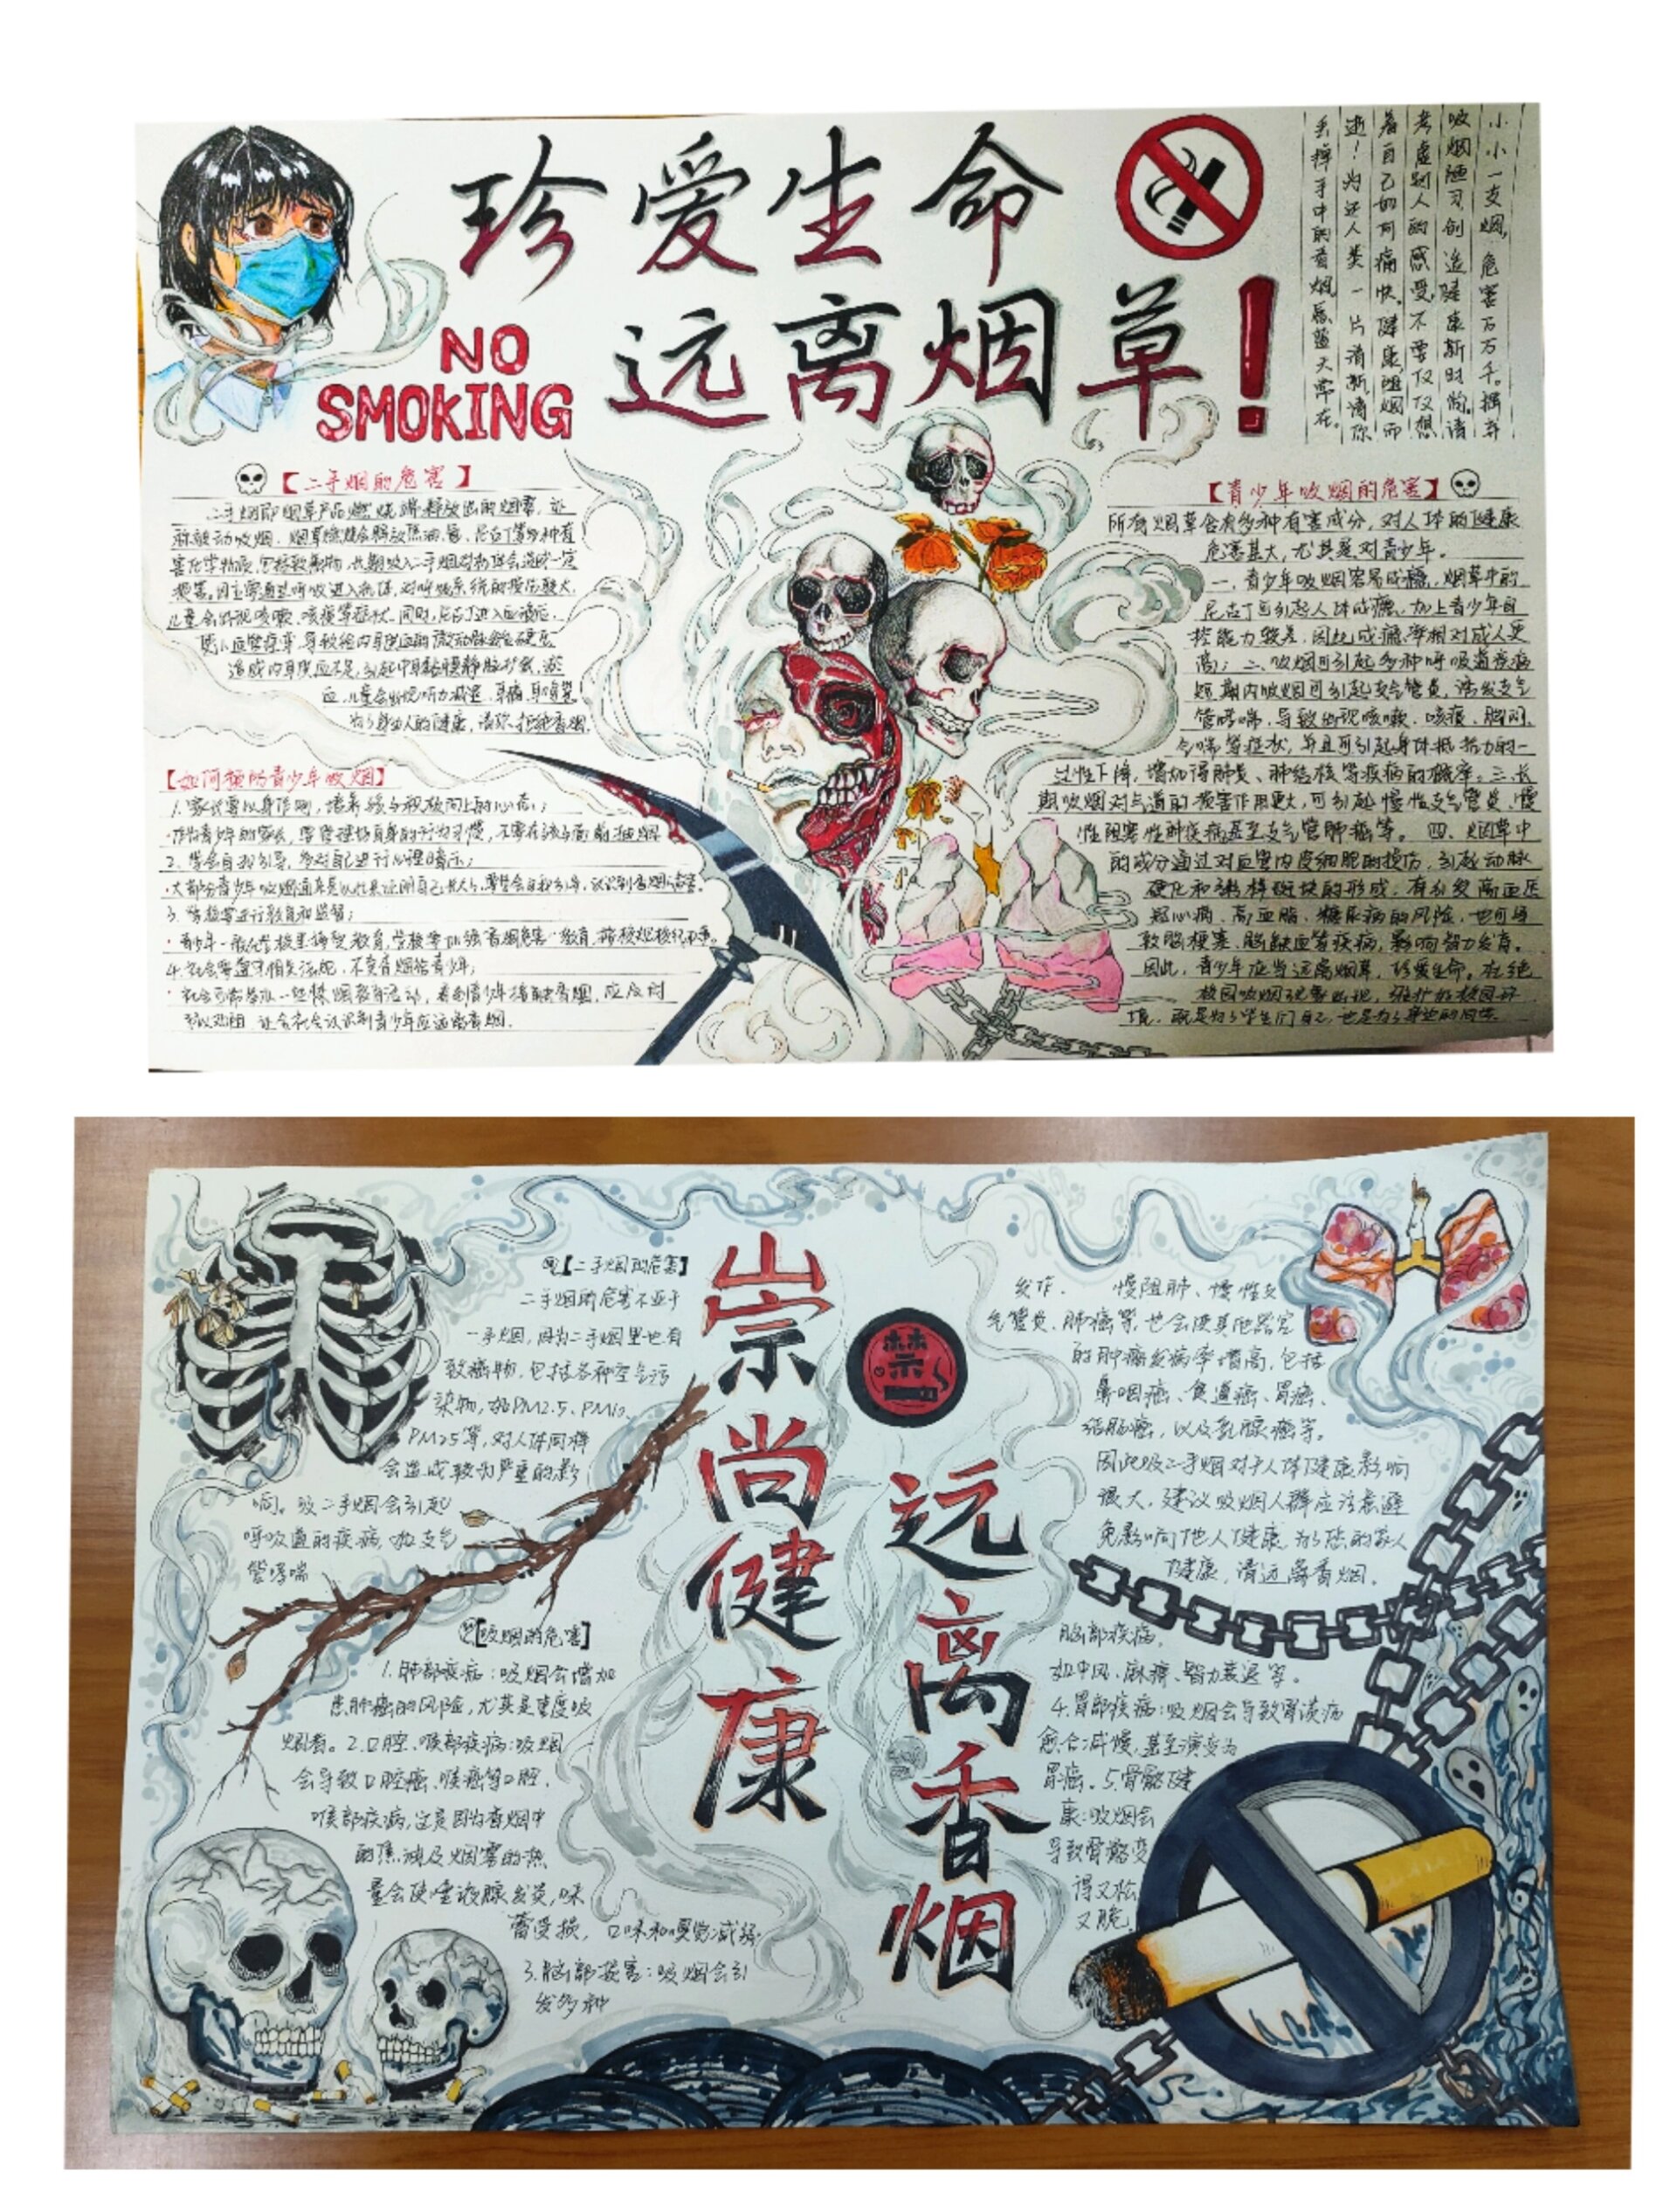 珍爱生命
远离烟草!
NO
SMOKING
小小一支烟,危害万万千。摒弃
吸烟陋习,创造健康新时尚。请
考虑别人的感受,不要仅仅想
着自己如何痛快。健康,随烟而
逝!为还人类一片清新,请你
丢掉手中的香烟,愿蓝天常在。
【二手烟的危害】
二手烟即烟草产品燃烧端释放出的烟雾,
害化学物质,包括致癌物,长期吸入二手烟对身体会造成一定
损害,因主要通过呼吸进入机体,对呼吸系统的损伤较大,
儿童会出现咳嗽、咳痰等症状。同时,尼古丁进入血液后,
造成内耳供血不足,引起中耳黏膜静脉扩张、淤
血,儿童会出现听力减退、耳痛、耳鸣!
为了身边人的健康,请你拒绝香烟。
【如何预防青少年吸烟】
1. 家长要以身作则,培养孩子积极向上的心态;
·作为青少年的家长,要管理好自身的行为习惯,不要在孩子面前抽烟
2. 学会自我引导,多对自己进行心理暗示;
3. 学校要进行教育和监管;
4. 社会要遵守相关法规,不卖香烟给青少年;
予以劝阻,让全社会认识到青少年应远离香烟.
【青少年吸烟的危害】
所有烟草含有多种有害成分,对人体的健康
危害甚大,尤其是对青少年。
一、青少年吸烟容易成瘾,烟草中的
尼古丁可引起人体成瘾,加上青少年自
控能力较差,因此成瘾率相对成人更
高;二、吸烟可引起多种呼吸道疾病
短期内吸烟可引起支气管炎,诱发支气
管哮喘,导致出现咳嗽、咳痰、胸闷、
气喘等症状,并且可引起身体抵抗力的一
过性下降,增加得肺炎、肺结核等疾病的概率;三、长
期吸烟对气道的损害作用更大,可引起慢性支气管炎、慢
性阻塞性肺疾病甚至支气管肺癌等。四、烟草中
的成分通过对血管内皮细胞的损伤,引起动脉
硬化和粥样斑块的形成,有引发高血压
冠心病、高血脂、糖尿病的风险,也可导
致脑梗塞、脑缺血等疾病,影响智力发育。
因此,青少年应当远离烟草,珍爱生命。杜绝
校园吸烟现象出现,维护好校园环
境,既是为了学生们自己,也是为了身边的同学。
崇尚健康
禁
远离香烟
【二手烟的危害】
二手烟的危害不亚于
一手烟,因为二手烟里也有
致癌物,包括各种空气污
染物,如PM2.5、PM10、
PM25等,对人体同样
会造成较为严重的影
响。吸二手烟会引起
呼吸道的疾病,如支气
管哮喘
发作、慢阻肺、慢性支
气管炎、肺癌等,也会使其他器官
的肿瘤发病率增高,包括
鼻咽癌、食道癌、胃癌、
结肠癌,以及乳腺癌等。
因此吸二手烟对于人体健康影响
很大,建议吸烟人群应注意避
免影响他人健康,为了您的家人
健康,请远离香烟。
[吸烟的危害]
1.肺部疾病:吸烟会增加
患肺癌的风险,尤其是重度吸
烟者。2.口腔、喉部疾病:吸烟
会导致口腔癌、喉癌等口腔、
喉部疾病,这是因为香烟中
的焦油及烟雾的热
量会使唾液腺发炎,味
蕾受损,口味和嗅觉减弱
3.脑部损害:吸烟会引
发多种
脑部疾病,
如中风、麻痹、智力衰退等。
4.胃部疾病:吸烟会导致胃溃疡
愈合减慢,甚至演变为
胃癌。5.骨骼健
康:吸烟会
导致骨骼变
得又松
又脆。